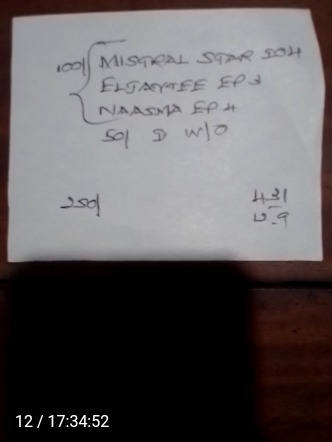 100/ MISTRAL STAR 504
ELJAYTEE EP 3
NAASMA EP 4
50/ D W/O
250/
431
12.9
12 / 17:34:52